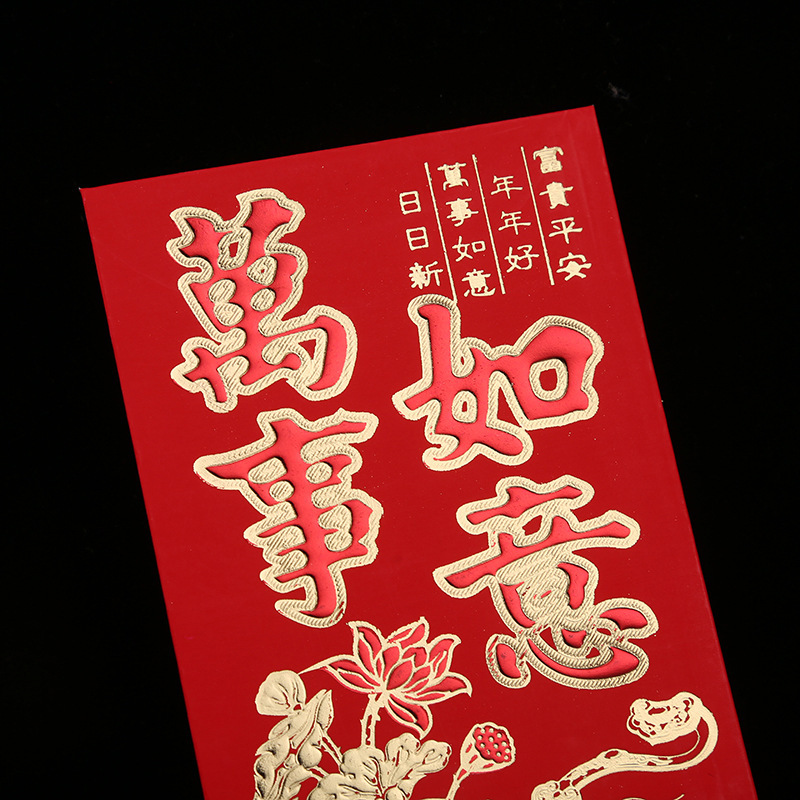 富貴平安
年年好
萬事如意
日日新
萬事
如意